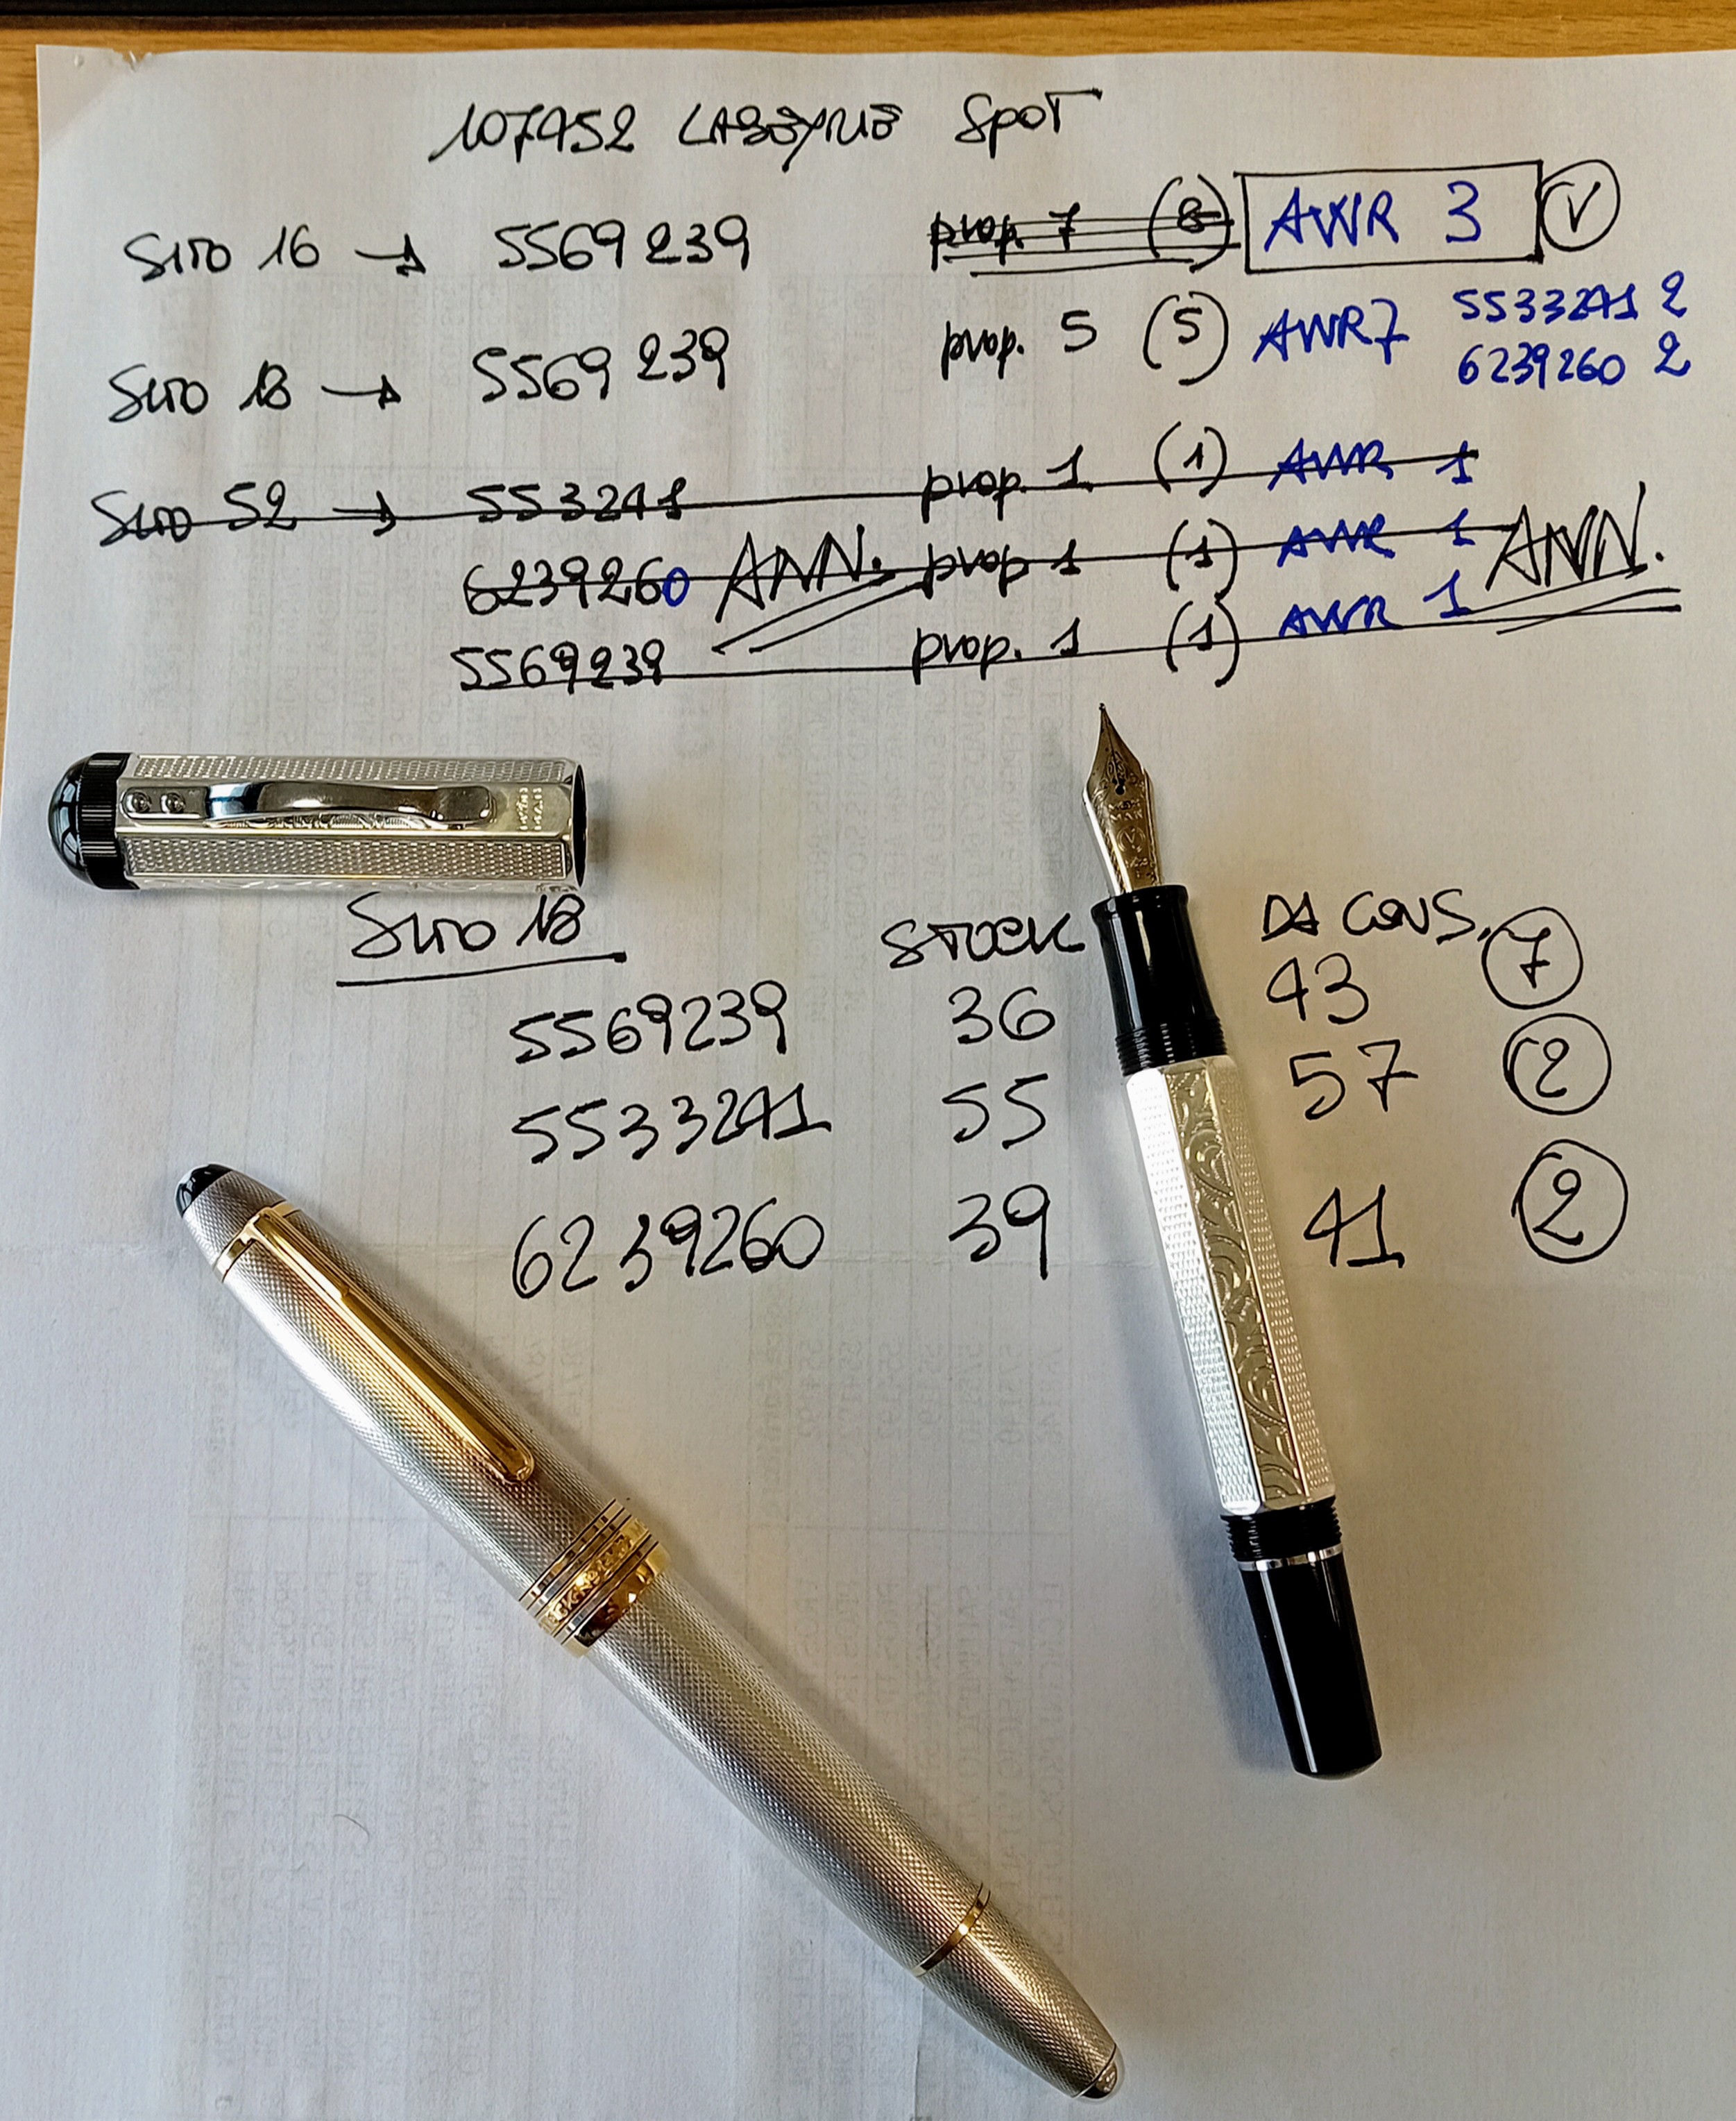 107452 LABEYRIE SPOT
Sito 16 → 5569239 prop. 7 (8) AWR 3 V
Sito 18 → 5569239 prop. 5 (5) AWR 7 5533241 2
6239260 2
Sito 52 → 553241 prop. 1 (1) AWR 1
6239260 ANN. prop 1 (1) AWR 1 ANN.
5569239 prop. 1 (1) AWR 1
Sito 18 STOCK DA CONS.
5569239 36 43 7
5533241 55 57 2
6239260 39 41 2